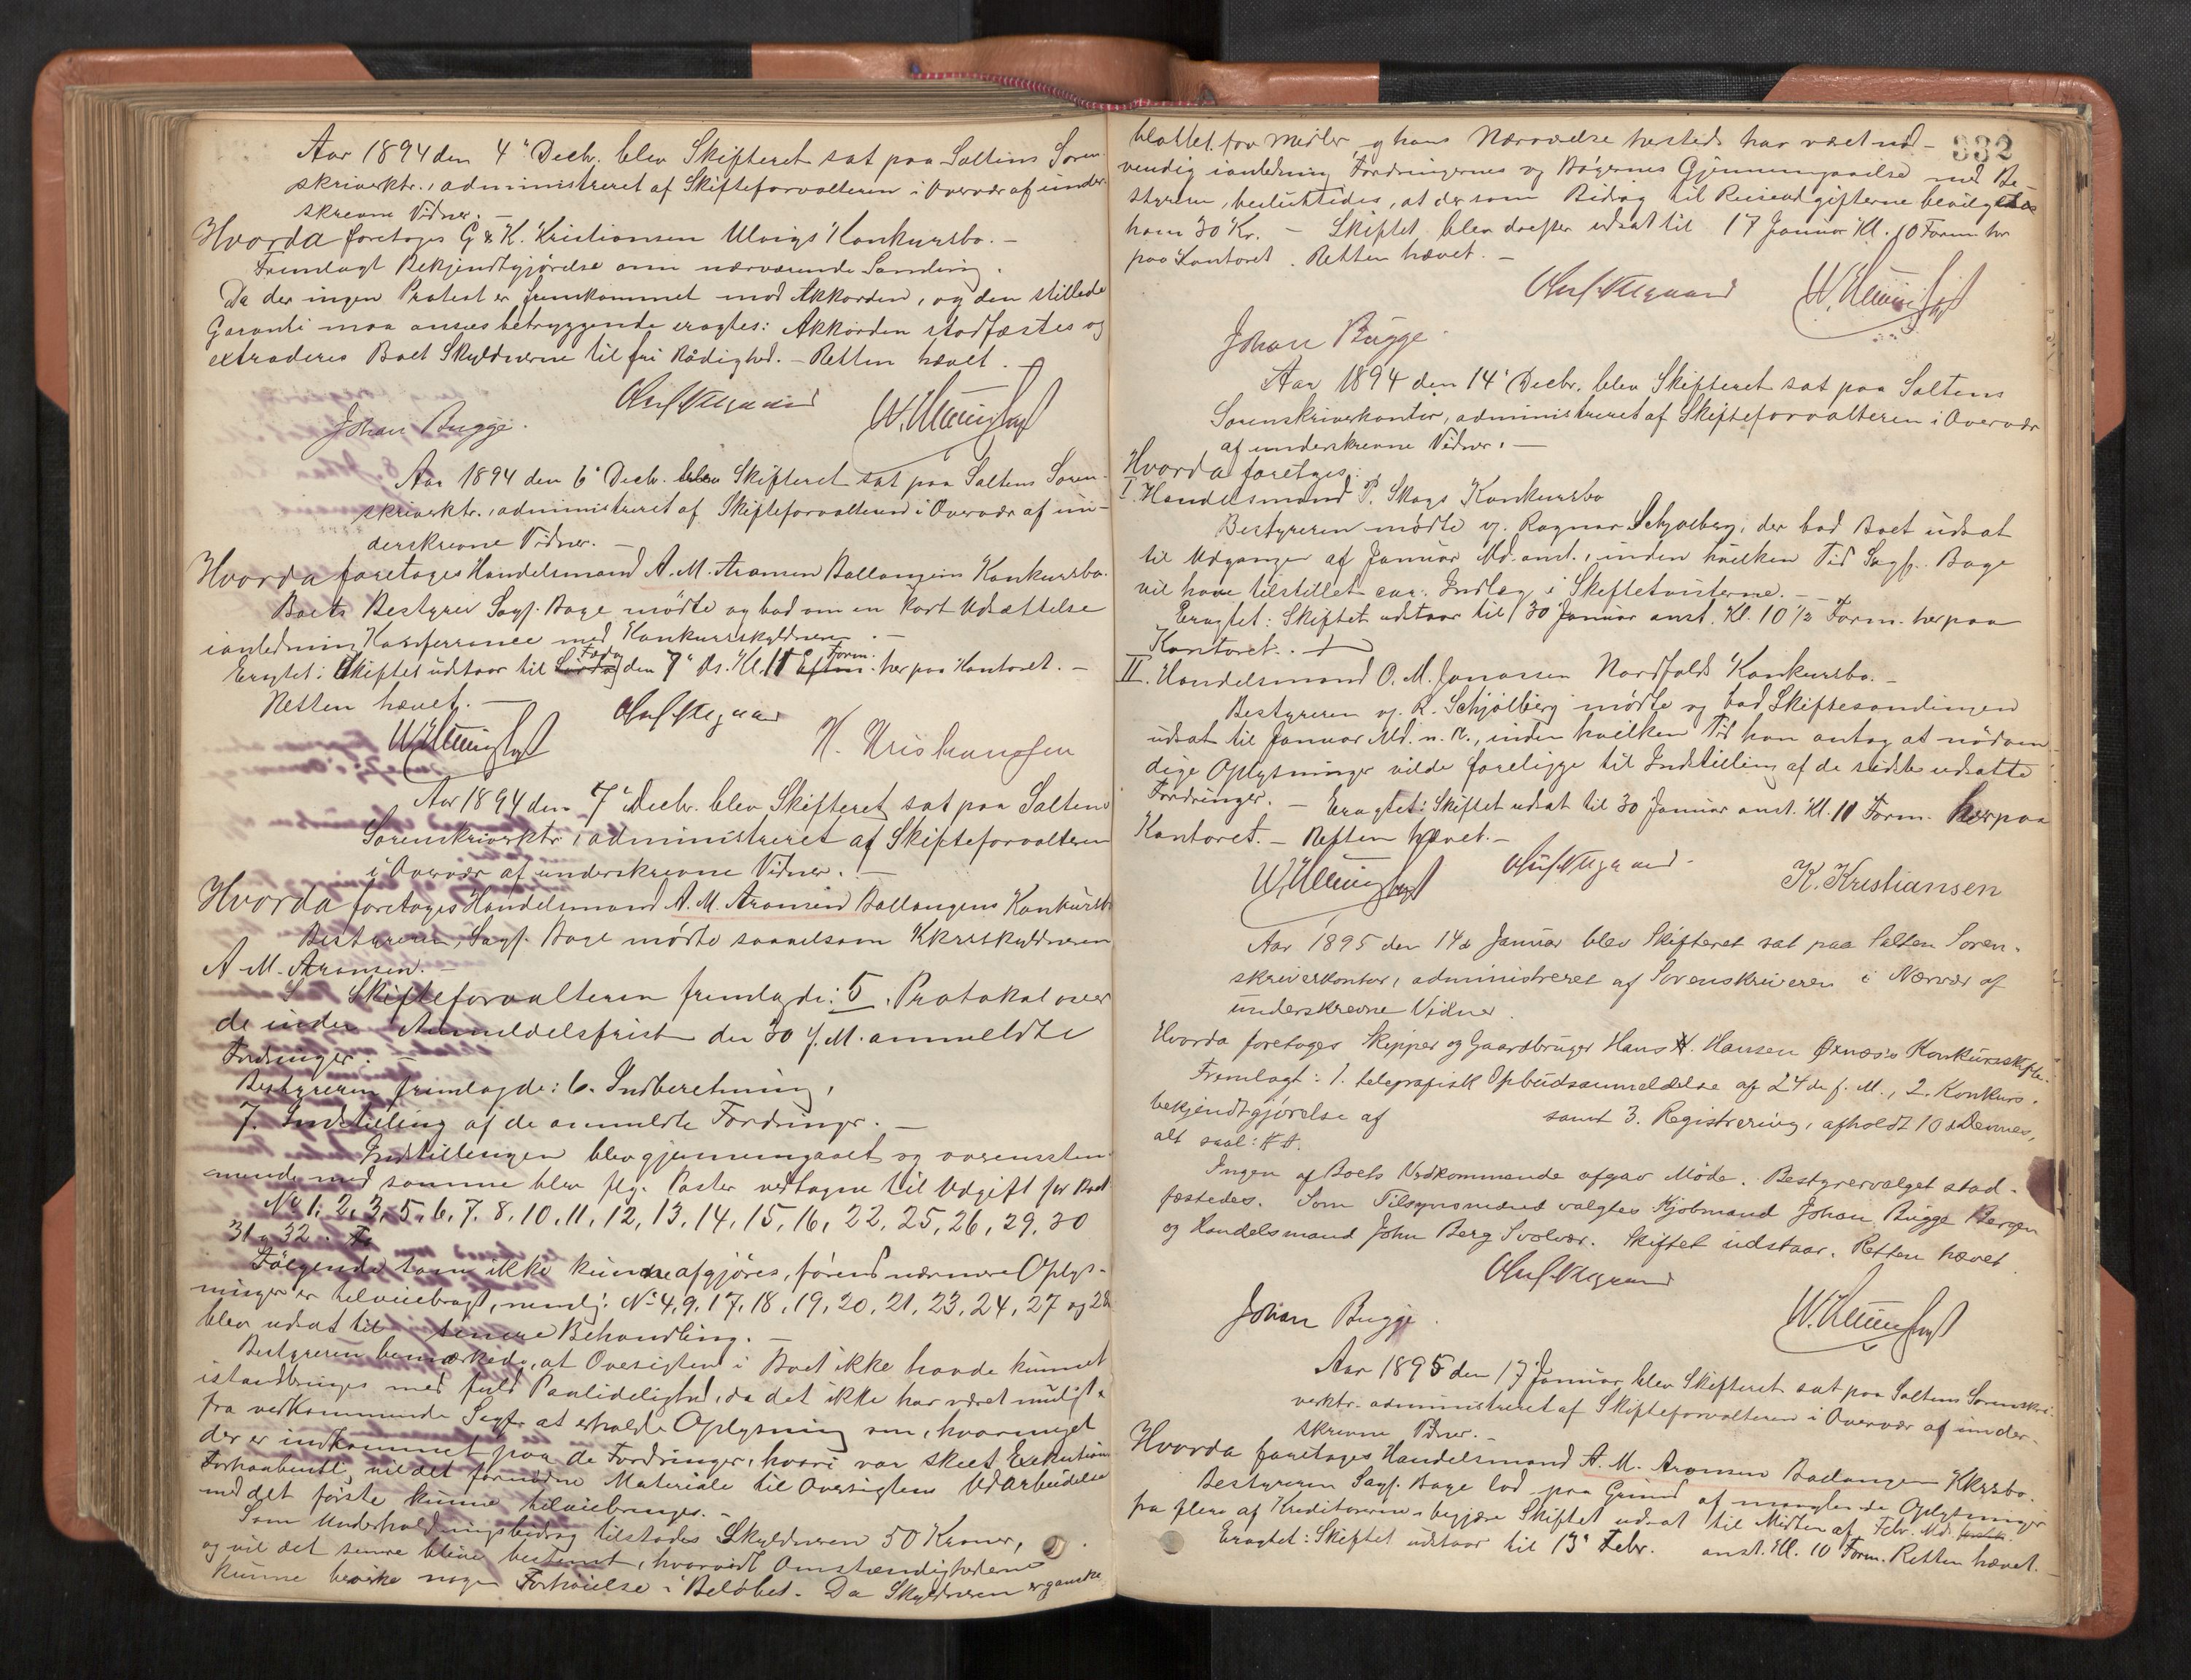 Aar 1894 den 4' Decbr. blev Skifteret sat paa Saltens Soren-
skriverktr., administreret af Skifteforvalteren i Overvær af under-
skrevne Vidner. –
Hvorda foretoges G & K. Kristiansen Ulvigs Konkursbo. –
Fremlagt Bekjendtgjörelse om nærværende Samling.
Da der ingen Protest er fremkommet mod Akkorden, og den stillede
Garanti maa ansees betryggende eragtes: Akkorden stadfæstes og
extraderes Boet Skyldnerne til fri Rådighed. – Retten hævet.
Johan Bugge.
Aar 1894 den 6' Decbr. blev Skifteret sat paa Saltens Soren-
skriverktr., administreret af Skifteforvalteren i Overvær af un-
derskrevne Vidner. –
Hvorda foretoges Handelsmand A. M. Aronsen Ballangens Konkursbo.
Boets Bestyrer Sagf. Bage mødte og bad om en kort Udsættelse
i anledning Konferrence med Konkursskyldneren. –
Eragtet: Skiftet udstaar til Fredag den 7' ds. Kl. 11 Form. her paa Kontoret. –
Retten hævet. –
K. Kristiansen
Aar 1894 den 7' Decbr. blev Skifteret sat paa Saltens
Sorenskriverktr., administreret af Skifteforvalteren
i Overvær af underskrevne Vidner. –
Hvorda foretoges Handelsmand A. M. Aronsen Ballangens Konkursbo
Bestyreren, Sagf. Bage mødte saavelsom Kkrsskyldneren
A. M. Aronsen. –
Skifteforvalteren fremlagde: 5. Protokol over
de inden Anmeldelsfrist den 30 f. M. anmeldte
Fordringer. –
Bestyreren fremlagde: 6. Indberetning,
7. Indstilling af de anmeldte Fordringer. –
Indstillingen blev gjennemgaaet og overensstem-
mende med samme blev flg. Poster vedtagne til Udgift for Boet
No 1, 2, 3, 5, 6, 7, 8, 10, 11, 12, 13, 14, 15, 16, 22, 25, 26, 29, 30
31 og 32.
Fölgende som ikke kunde afgjöres, förend nærmere Oplys-
ninger er tilveiebragt, nemlig: No 4, 9, 17, 18, 19, 20, 21, 23, 24, 27 og 28
blev udsat til senere Behandling. –
Bestyreren bemærkede, at Oversigten i Boet ikke havde kunnet
istandbringes med fuld Paalidelighed, da det ikke har været muligt
fra vedkommende Sagfr. at erholde Oplysning om, hvormeget
der er indkommet paa de Fordringer, hvori var skeet Exekution
Forhaabentl. vil det fornødne Materiale til Oversigtens Udarbeidelse
med det förste kunne tilveiebringes. –
Som Underholdningsbidrag tilstodes Skyldneren 50 Kroner,
og vil det senere blive bestemt, hvorvidt Omstændighederne
kunne bevirke nogen Forhøielse i Beløbet. Da Skyldneren er ganske
332
blottet for Midler, og hans Nærværelse hersteds har været nød-
vendig i anledning Fordringernes og Bøgernes Gjennemgaaelse med Be-
styreren, besluttedes, at der som Bidrag til Reiseudgifterne bevilgedes
ham 30 Kr. – Skiftet blev derefter udsat til 17 Januar Kl. 10 Form her
paa Kontoret. Retten hævet. –
Johan Bugge.
Aar 1894 den 14' Decbr. blev Skifteret sat paa Saltens
Sorenskriverkontor, administreret af Skifteforvalteren i Overvær
af underskrevne Vidner. –
Hvorda foretoges:
I. Handelsmand P. Skogs Konkursbo
Bestyreren mødte v. Ragnar Schjølberg, der bad Boet udsat
til Udgangen af Januar Md. anst., inden hvilken Tid Sagf. Bage
vil have tilstillet ham Indlæg i Skiftetvisterne. –
Eragtet: Skiftet udstaar til 30 Januar anst. Kl. 10 1/2 Form. her paa
Kontoret.
II. Handelsmand O. M. Jonassen Nordfolds Konkursbo. –
Bestyreren v. R. Schjølberg mødte og bad Skiftesamlingen
udsat til Januar Md. n. A., inden hvilken Tid han antog at nödven-
dige Oplysninger vilde foreligge til Indstilling af de sidste udsatte
Fordringer. – Eragtet: Skiftet udsat til 30 Januar anst. Kl. 11 Form. her paa
Kontoret. – Retten hævet. –
K. Kristiansen
Aar 1895 den 14de Januar blev Skifteret sat paa Salten Soren-
skriverkontor, administreret af Sorenskriveren i Nærvær af
underskrevne Vidner.
Hvorda foretoges Skipper og Gaardbruger Hans A. Hansen Øxnæs's Konkursskifte.
Fremlagt: 1. telegrafisk Opbudsanmeldelse af 24de f. M., 2. Konkurs-
bekjendtgjørelse af samt 3. Registrering, afholdt 10de Dennes,
alt saal:
Ingen af Boets Vedkommende afgav Møde. Bestyrervalget stad-
fæstedes. Som Tilsynsmænd valgtes Kjøbmand Johan Bugge Bergen
og Handelsmand John Berg Svolvær. Skiftet udstaar. Retten hævet.
Johan Bugge.
Aar 1895 den 17 Januar blev Skifteret sat paa Saltens Sorenskri-
verktr. administreret af Skifteforvalteren i Overvær af under-
skrevne Vidner. –
Hvorda foretoges Handelsmand A. M. Aronsen Ballangen Kkrsbo.
Bestyreren Sagf. Bage lod paa Grund af manglende Oplysninger
fra flere af Kreditorerne begjære Skiftet udsat til Midten af Febr. Md.
Eragtet: Skiftet udstaar til 13' Febr. anst. Kl. 10 Form. Retten hævet. –